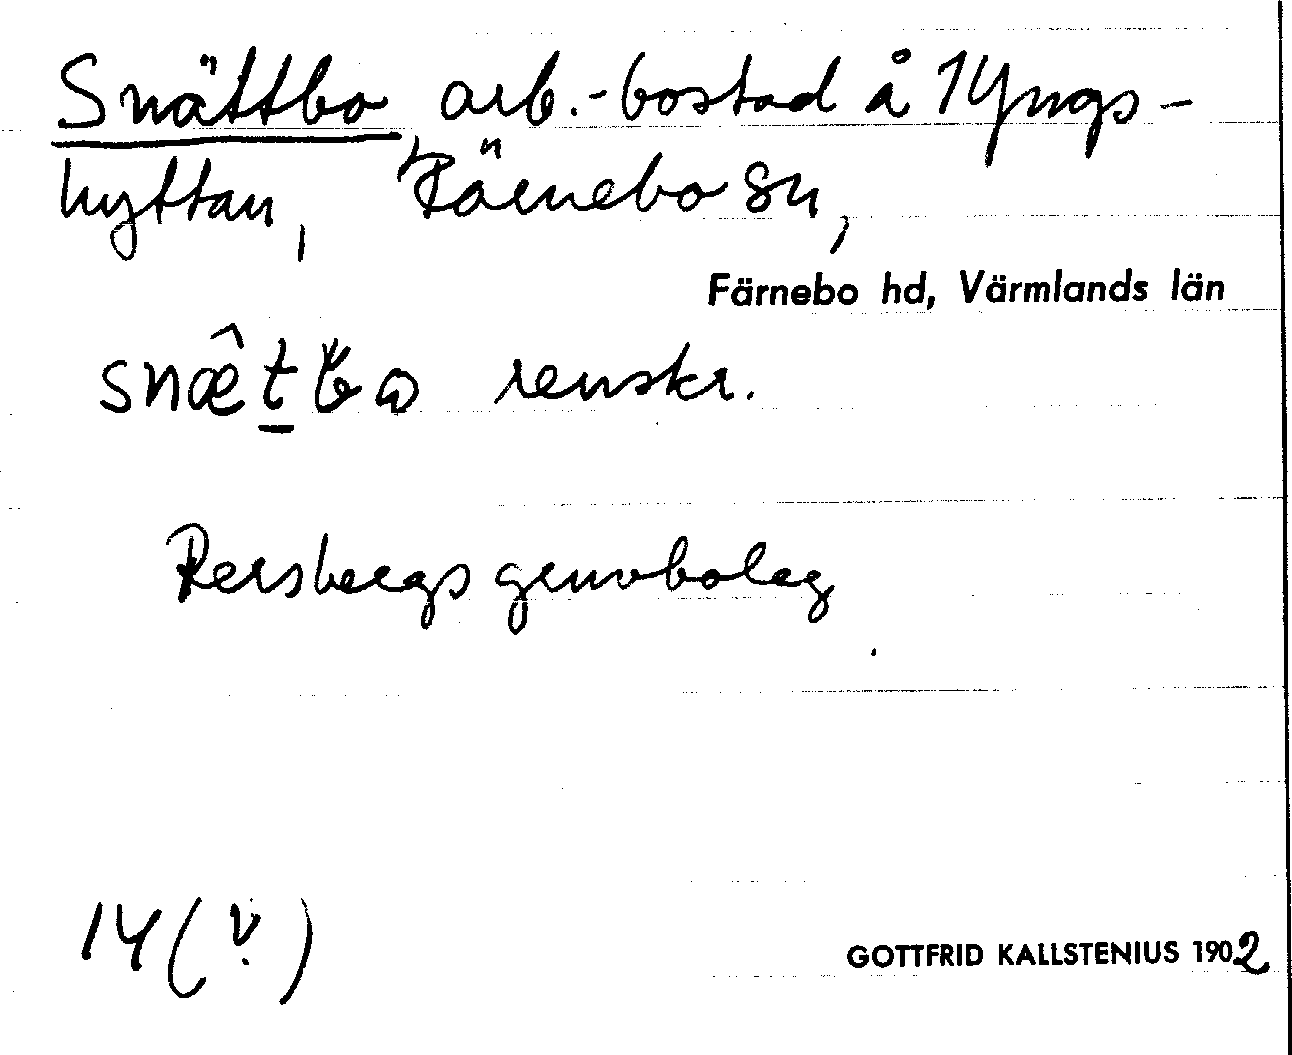 Snättbo, arb.-bostad å 1 Yngs-
hyttan, Färnebo sn,
Färnebo hd, Värmlands län
renskr.
Persbergs gruvbolag
14 (v.)
GOTTFRID KALLSTENIUS 1902